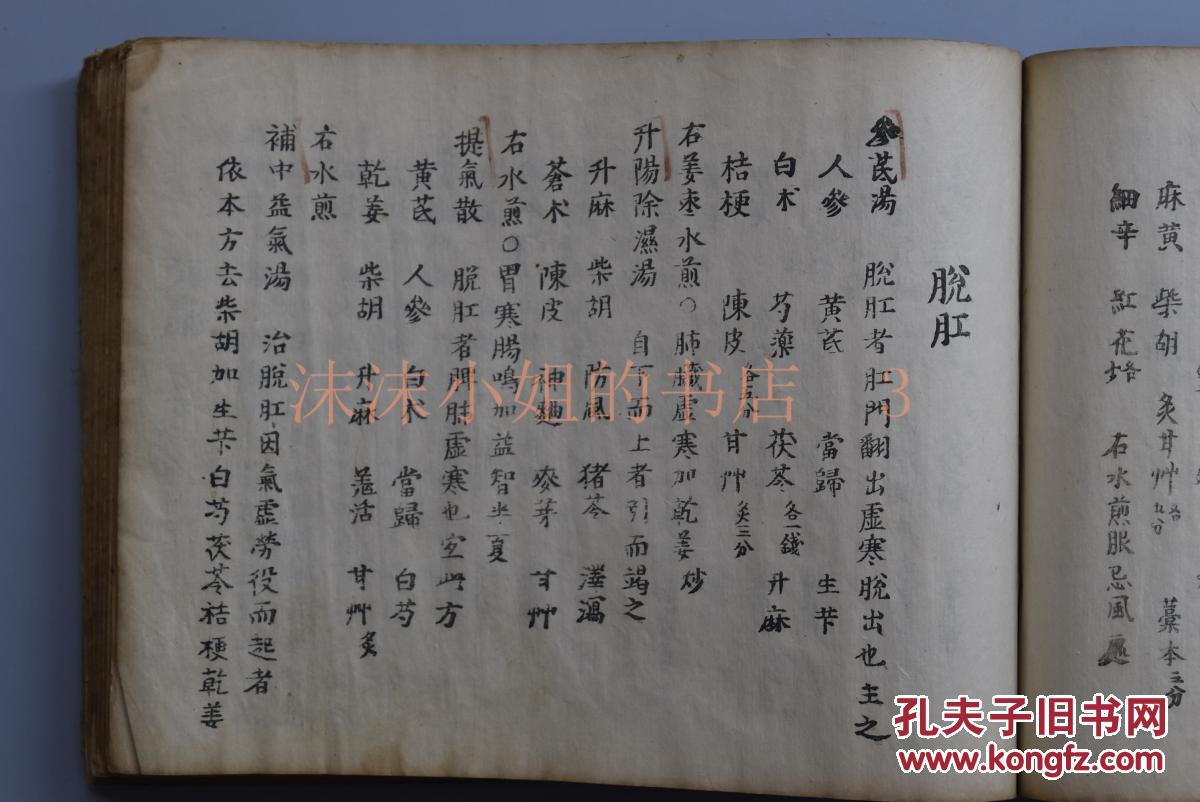 麻黄 柴胡 炙甘艸 各五分 藁本 三分
細辛 紅花 右水煎服忌風
脫肛
參芪湯 脫肛者肛門翻出虛寒脫出也主之
人參 黃芪 當歸 生芐
白朮 芍藥 茯苓 各一錢 升麻
桔梗 陳皮 各五分 甘艸 炙三分
右姜枣水煎○肺臟虛寒加乾姜炒
升陽除濕湯 自下而上者引而竭之
升麻 柴胡 防風 猪苓 澤瀉
蒼朮 陳皮 神麯 麥芽 甘艸
右水煎○胃寒腸鳴加益智半夏
提氣散 脫肛者脾肺虛寒也宜此方
黃芪 人參 白朮 當歸 白芍
乾姜 柴胡 升麻 羌活 甘艸 炙
右水煎
補中益氣湯 治脫肛因氣虛勞役而起者
依本方去柴胡加生芐白芍茯苓桔梗乾姜
沫沫小姐的书店 3
孔夫子旧书网
www.kongfz.com